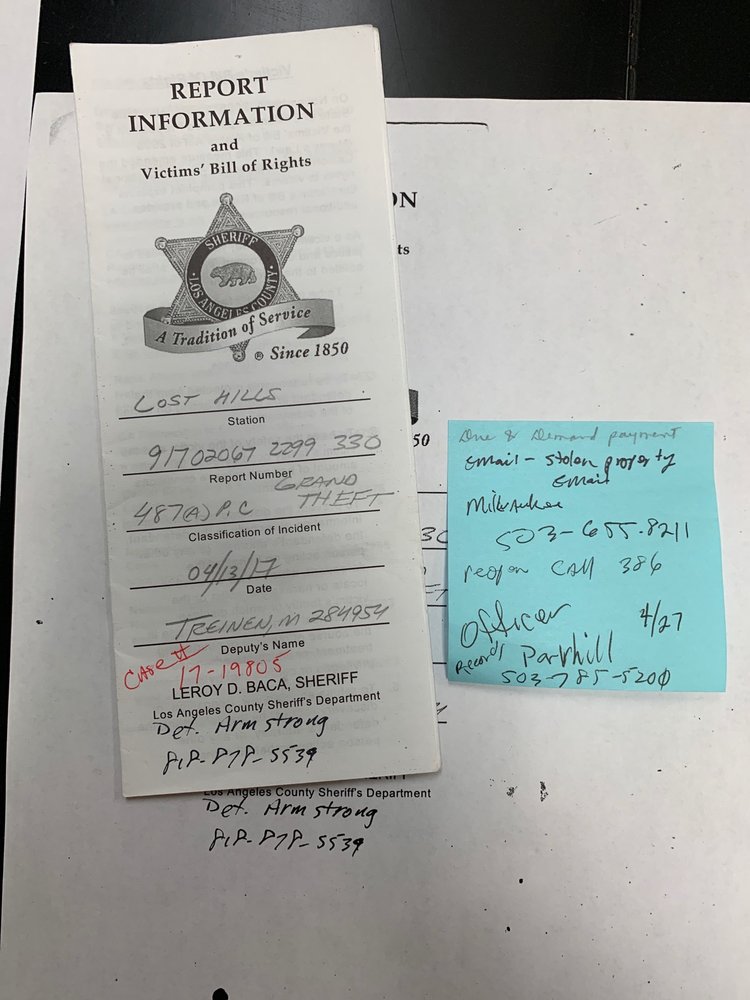 REPORT
INFORMATION
and
Victims' Bill of Rights
SHERIFF
LOS ANGELES COUNTY
A Tradition of Service
® Since 1850
LOST HILLS
Station
91702067 2299 330
Report Number
GRAND
487(A) P.C THEFT
Classification of Incident
04/13/17
Date
TREINEN, M 284954
Deputy's Name
CASE #
17-19805
LEROY D. BACA, SHERIFF
Los Angeles County Sheriff's Department
Det. Armstrong
818-878-5539
ON
ts
50
Los Angeles County Sheriff's Department
Det. Armstrong
818-878-5539
Due & Demand payment
Email - stolen property
Email
Milwaukee
503-655-8211
reopen CAll 386
Officer 4/27
Records Parkhill
503-785-5200